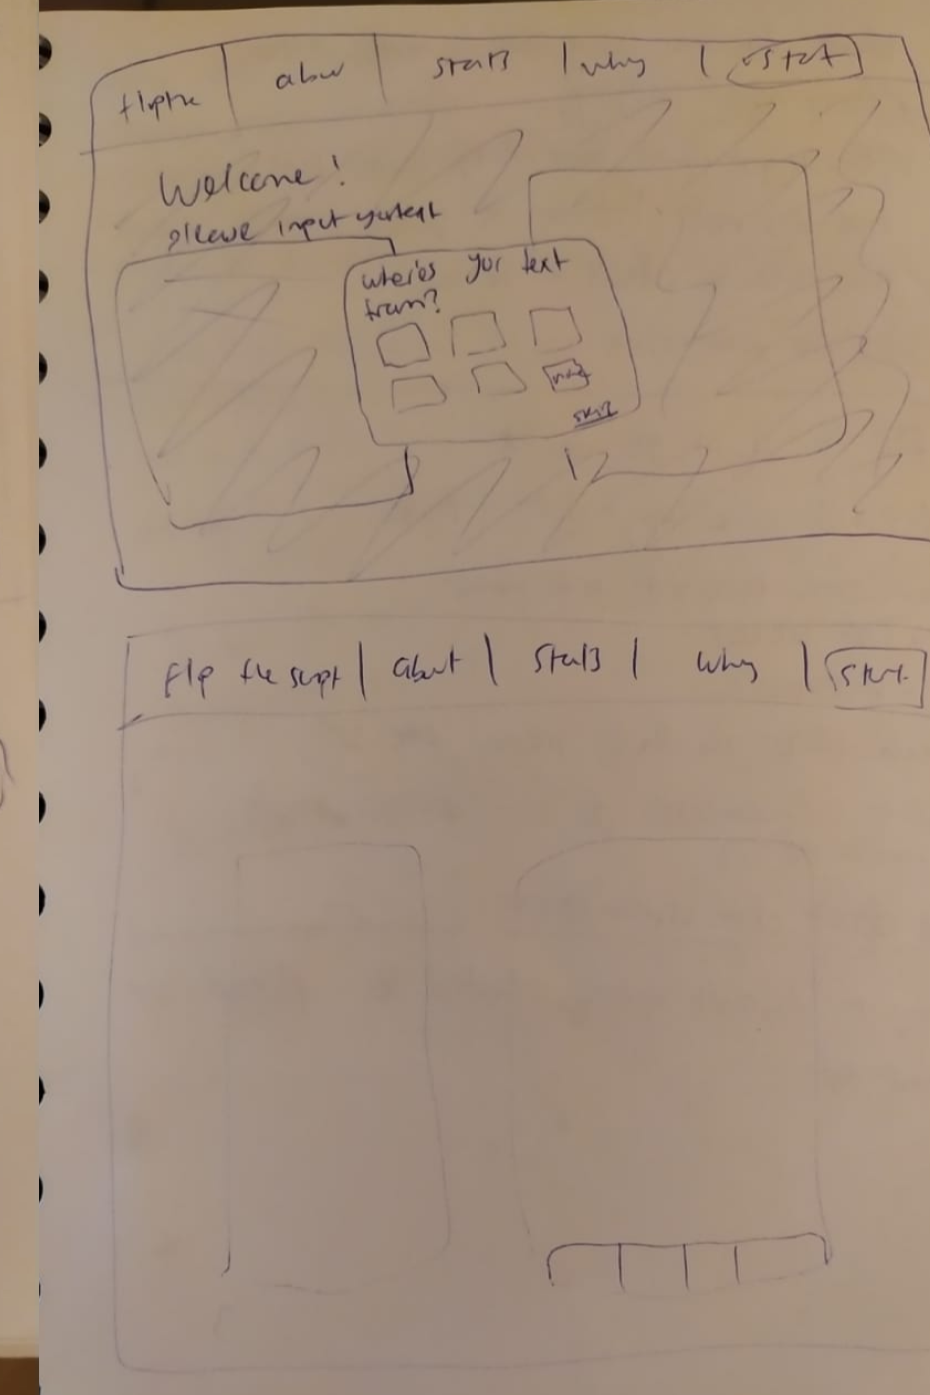 about stats why start
Welcome!
please input your text
where's your text
from?
skip
flip the script | about | stats | why | start